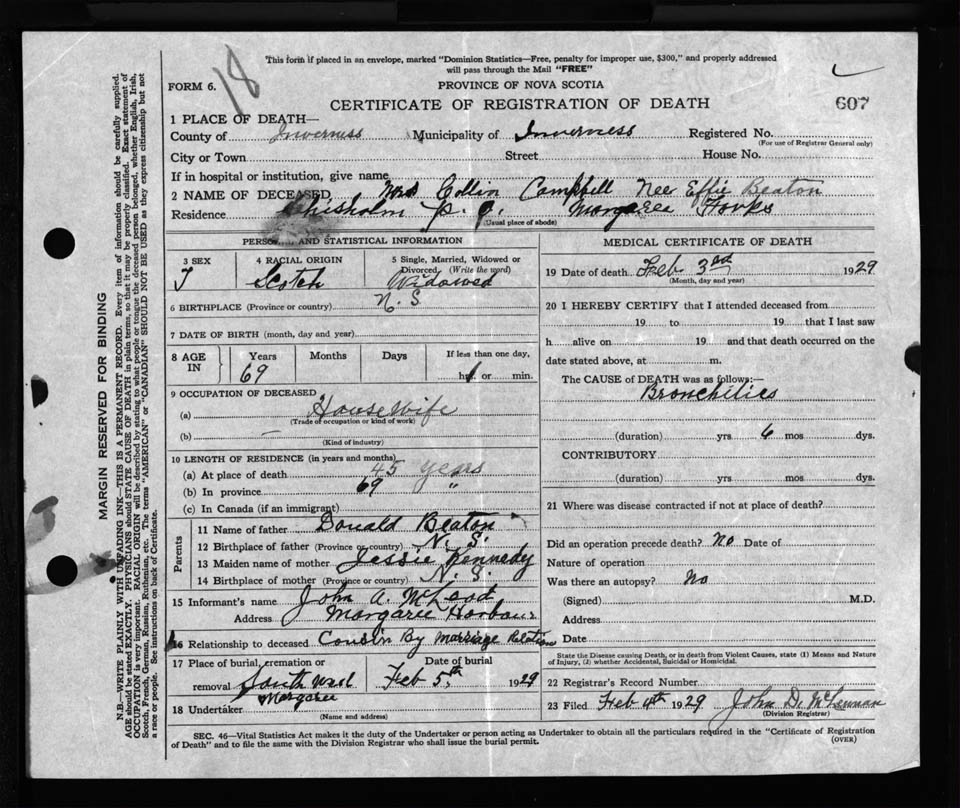 This form if placed in an envelope, marked "Dominion Statistics—Free, penalty for improper use, $300," and properly addressed
will pass through the Mail "FREE"
18
FORM 6.
PROVINCE OF NOVA SCOTIA
CERTIFICATE OF REGISTRATION OF DEATH
607
1 PLACE OF DEATH—
County of Inverness Municipality of Inverness Registered No.
(For use of Registrar General only)
City or Town Street House No.
If in hospital or institution, give name
2 NAME OF DECEASED Mrs Collin Campbell Nee Effie Beaton
Residence Chisholm P.O. Margaree Forks
(Usual place of abode)
PERSONAL AND STATISTICAL INFORMATION
3 SEX 4 RACIAL ORIGIN 5 Single, Married, Widowed or
Divorced (Write the word)
Scotch Widowed
6 BIRTHPLACE (Province or country) N. S
7 DATE OF BIRTH (month, day and year)
8 AGE IN Years Months Days If less than one day,
69 hrs. or min.
9 OCCUPATION OF DECEASED
(a) House Wife
(Trade of occupation or kind of work)
(b) —
(Kind of industry)
10 LENGTH OF RESIDENCE (in years and months)
(a) At place of death 45 years
(b) In province 69 "
(c) In Canada (if an immigrant)
Parents
11 Name of father Donald Beaton
12 Birthplace of father (Province or country) N. S.
13 Maiden name of mother Jessie Kennedy
14 Birthplace of mother (Province or country) N. S
15 Informant's name John A. McLeod
Address Margaree Harbour
16 Relationship to deceased Cousin By Marriage Relation
17 Place of burial, cremation or Date of burial
removal South West Feb 5th 1929
Margaree
18 Undertaker
(Name and address)
MEDICAL CERTIFICATE OF DEATH
19 Date of death Feb 3rd 1929
(Month, day and year)
20 I HEREBY CERTIFY that I attended deceased from
19 to 19 that I last saw
h alive on 19 and that death occurred on the
date stated above, at m.
The CAUSE of DEATH was as follows:—
Bronchities
(duration) yrs 6 mos dys.
CONTRIBUTORY
(duration) yrs mos dys.
21 Where was disease contracted if not at place of death?
Did an operation precede death? No Date of
Nature of operation
Was there an autopsy? No
(Signed) M.D.
Address
Date
State the Disease causing Death, or in death from Violent Causes, state (1) Means and Nature
of Injury, (2) whether Accidental, Suicidal or Homicidal.
22 Registrar's Record Number
23 Filed Feb 4th 1929 John D. McLennan
(Division Registrar)
SEC. 46—Vital Statistics Act makes it the duty of the Undertaker or person acting as Undertaker to obtain all the particulars required in the "Certificate of Registration
of Death" and to file the same with the Division Registrar who shall issue the burial permit.
(OVER)
MARGIN RESERVED FOR BINDING
N.B.—WRITE PLAINLY WITH UNFADING INK—THIS IS A PERMANENT RECORD. Every item of information should be carefully supplied.
AGE should be stated EXACTLY. PHYSICIANS should STATE CAUSE OF DEATH in plain terms, so that it may be properly classified. Exact statement of
OCCUPATION is very important. RACIAL ORIGIN will be described by stating to what people or tongue the deceased person belonged, whether English, Irish,
Scotch, French, German, Russian, Ruthenian, etc. The terms "AMERICAN" or "CANADIAN" SHOULD NOT BE USED as they express citizenship but not
a race or people. See instructions on back of Certificate.